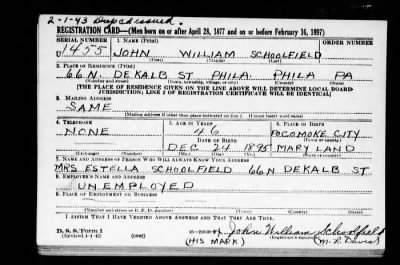 2-1-43 Dup. issued.
REGISTRATION CARD—(Men born on or after April 28, 1877 and on or before February 16, 1897)
SERIAL NUMBER 1. NAME (Print) ORDER NUMBER
U 1455 JOHN WILLIAM SCHOOLFIELD
(First) (Middle) (Last)
2. PLACE OF RESIDENCE (Print)
66 N. DEKALB ST PHILA. PHILA PA
(Number and street) (Town, township, village, or city) (County) (State)
[THE PLACE OF RESIDENCE GIVEN ON THE LINE ABOVE WILL DETERMINE LOCAL BOARD
JURISDICTION; LINE 2 OF REGISTRATION CERTIFICATE WILL BE IDENTICAL]
3. MAILING ADDRESS
SAME
[Mailing address if other than place indicated on line 2. If same insert word same]
4. TELEPHONE 5. AGE IN YEARS 6. PLACE OF BIRTH
NONE 46 POCOMOKE CITY
DATE OF BIRTH (Town or county)
DEC 24 1895 MARYLAND
(Exchange) (Number) (Mo.) (Day) (Yr.) (State or country)
7. NAME AND ADDRESS OF PERSON WHO WILL ALWAYS KNOW YOUR ADDRESS
MRS ESTELLA SCHOOLFIELD 66 N DEKALB ST
8. EMPLOYER'S NAME AND ADDRESS
UNEMPLOYED
9. PLACE OF EMPLOYMENT OR BUSINESS
(Number and street or R. F. D. number) (Town) (County) (State)
I AFFIRM THAT I HAVE VERIFIED ABOVE ANSWERS AND THAT THEY ARE TRUE.
D. S. S. Form 1
(Revised 4-1-42) (over) John William Schoolfield
(HIS MARK) (Registrant's signature) (M. R. Davis)